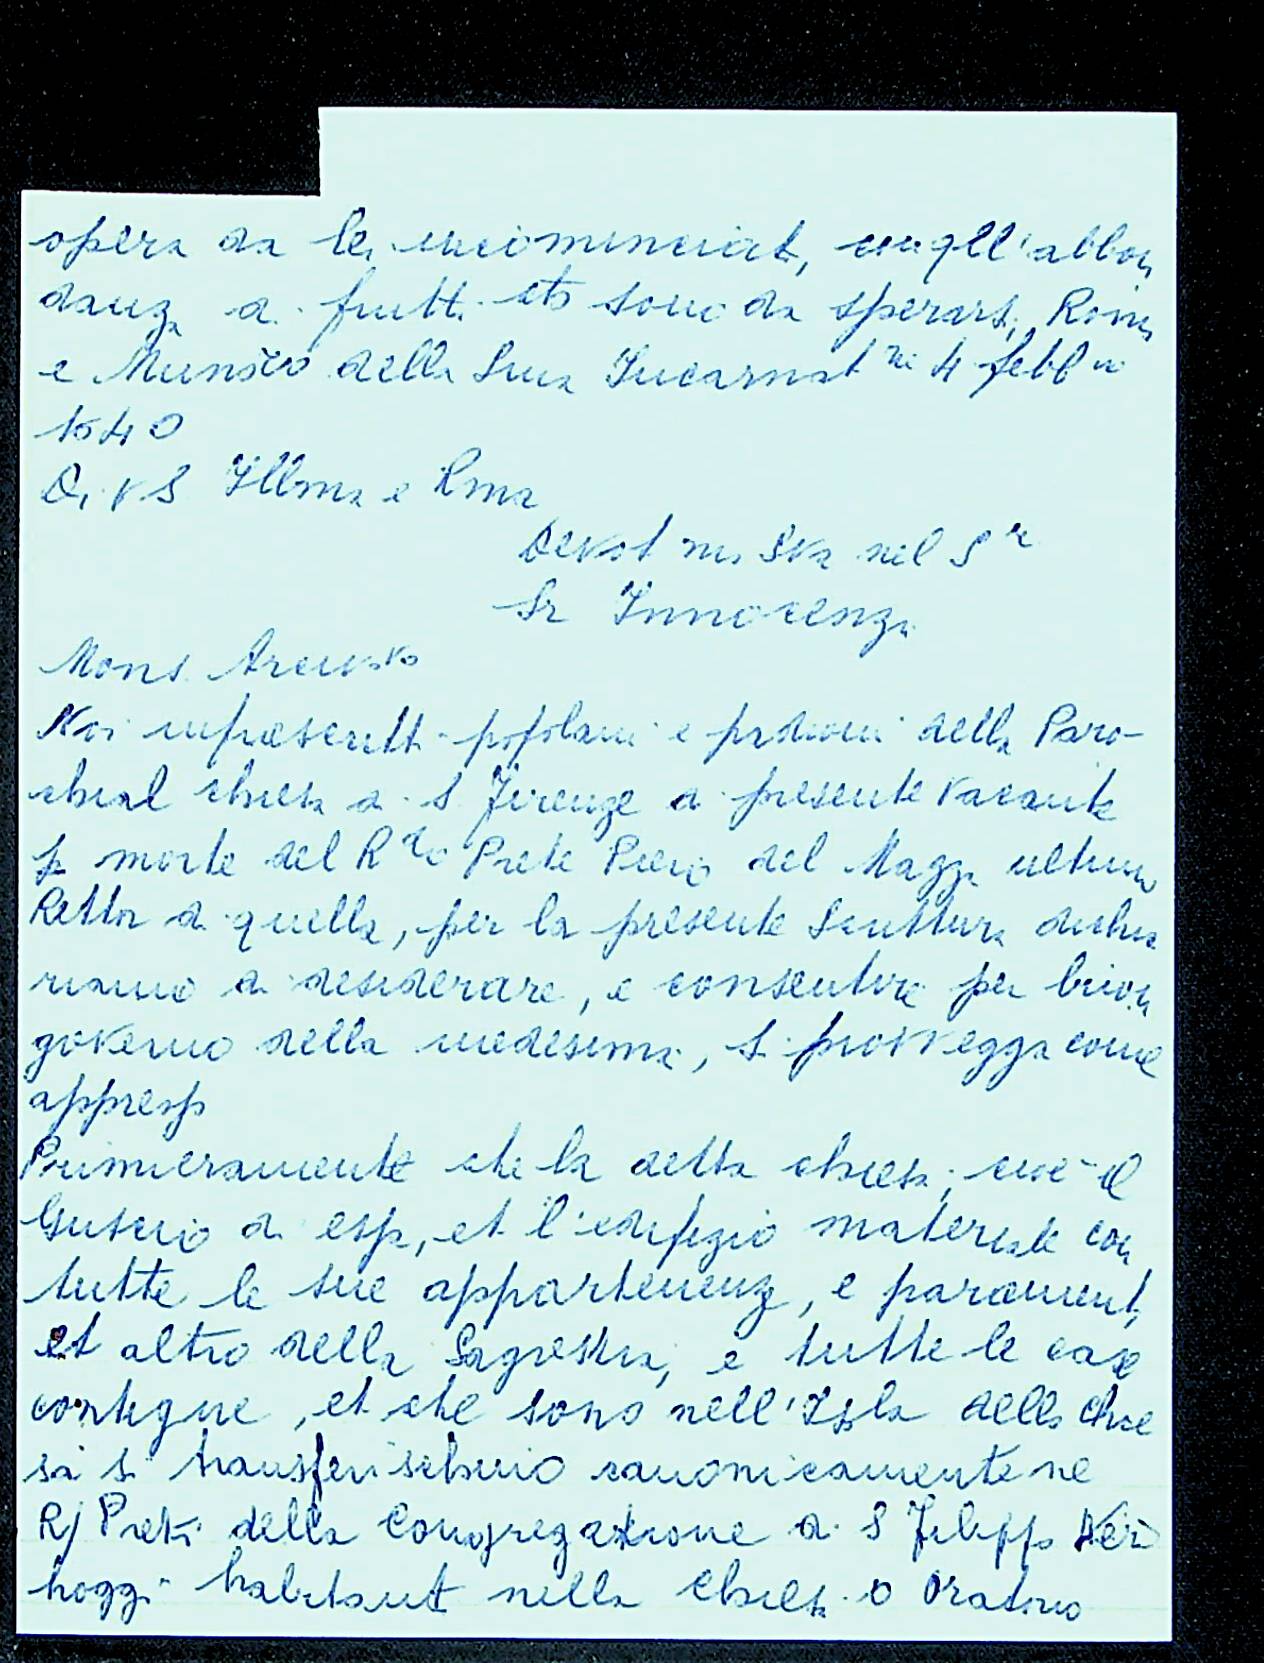 opera da lei incominciat, con qll'abbon
danza di frutti ets sono da sperarsi, Roma
e Munsro della Sma Incarnat ne 4 febb ro
1640
Di V S Illma e Rma
Devot ma Sva nel S re
Sr Innocenza
Mons. Arcivsvo
Noi infrascritti popolani e padroni della Paro-
chial chiesa di S Firenze di presente vacante
p morte del R do Prete Piero del Mazza ultimo
Rettor di quella, per la presente Scrittura dichia
riamo di desiderare, e consentire per buon
governo della medesima, si provvegga come
appresso
Primieramente che la detta chiesa, cioè il
Guscio di essa, et l'edifizio materiale con
tutte le sue appartenenze, e paramenti,
et altro della Sagrestia, e tutte le case
contigue, et che sono nell'Isola della Chie
sa si transferischino canonicamente ne
R/ Preti della Congregazione di S Filippo Neri
hoggi habitanti nella chiesa o Oratorio